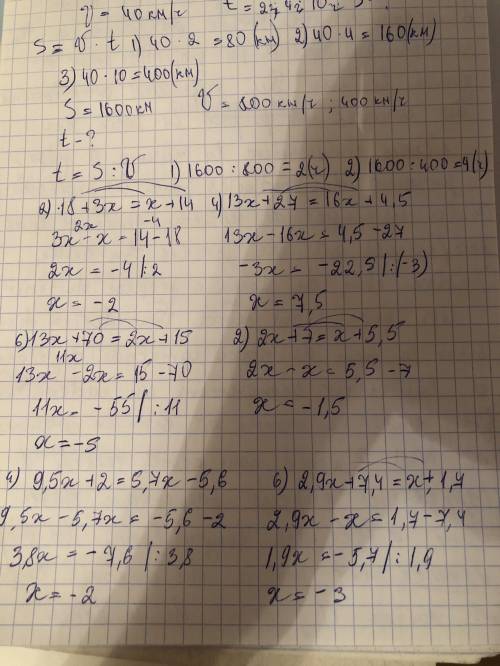 V = 40 км/ч t = 2ч 4ч 10ч S-?
S = V · t 1) 40 · 2 = 80 (км) 2) 40 · 4 = 160(км)
3) 40 · 10 = 400(км)
S = 1600км V = 800 км/ч ; 400 км/ч
t - ?
t = S : V 1) 1600 : 800 = 2(ч) 2) 1600 : 400 = 4(ч)
2) 18 + 3x = x + 14
3x - x = 14 - 18
2x -4
2x = -4 | : 2
x = -2
4) 13x + 27 = 16x + 4,5
13x - 16x = 4,5 - 27
-3x = -22,5 | : (-3)
x = 7,5
6) 13x + 70 = 2x + 15
11x
13x - 2x = 15 - 70
11x = -55 | : 11
x = -5
2) 2x + 7 = x + 5,5
2x - x = 5,5 - 7
x = -1,5
4) 9,5x + 2 = 5,7x - 5,6
9,5x - 5,7x = -5,6 - 2
3,8x = -7,6 | : 3,8
x = -2
6) 2,9x + 7,4 = x + 1,7
2,9x - x = 1,7 - 7,4
1,9x = -5,7 | : 1,9
x = -3